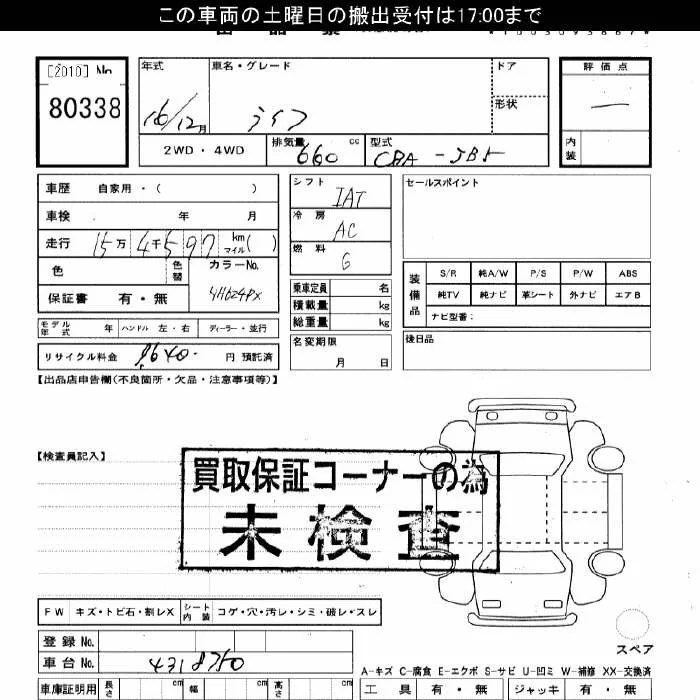 この車両の土曜日の搬出受付は17:00まで
[2010] No
80338
年式 車名・グレード ドア 評価点
16/12月 ライフ ー
形状
2WD・4WD 排気量 660 cc 型式 CBA-JB5 内装
車歴 自家用・( )
車検 年 月
走行 15万4千597 km マイル( )
色 色替 カラーNo.
保証書 有・無
モデル年式 年 ハンドル 左・右 ディーラー・並行
リサイクル料金 9640 円 預託済
シフト IAT
冷房 AC
燃料 G
乗車定員 名
積載量 kg
総重量 kg
名変期限
月 日
セールスポイント
装備品 S/R 純A/W P/S P/W ABS
純TV 純ナビ 革シート 外ナビ エアB
ナビ型番:
後日品
【出品店申告欄(不良箇所・欠品・注意事項等)】
【検査員記入】
買取保証コーナーの為
未検査
FW キズ・トビ石・割レX シート内装 コゲ・穴・汚レ・シミ・破レ・スレ
登録No.
車台No. 4318750
スペア
A-キズ C-腐食 E-エクボ S-サビ U-凹ミ W-補修 XX-交換済
車庫証明用 長さ cm 幅 cm 高さ cm 工具 有・無 ジャッキ 有・無